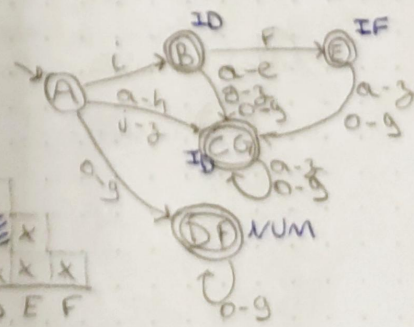 ID
IF
i
B
F
E
A
a-e
g-z
0-9
a-h
j-z
a-z
0-9
CG
ID
a-z
0-9
0-9
DF
NUM
0-9
X
X X
E F